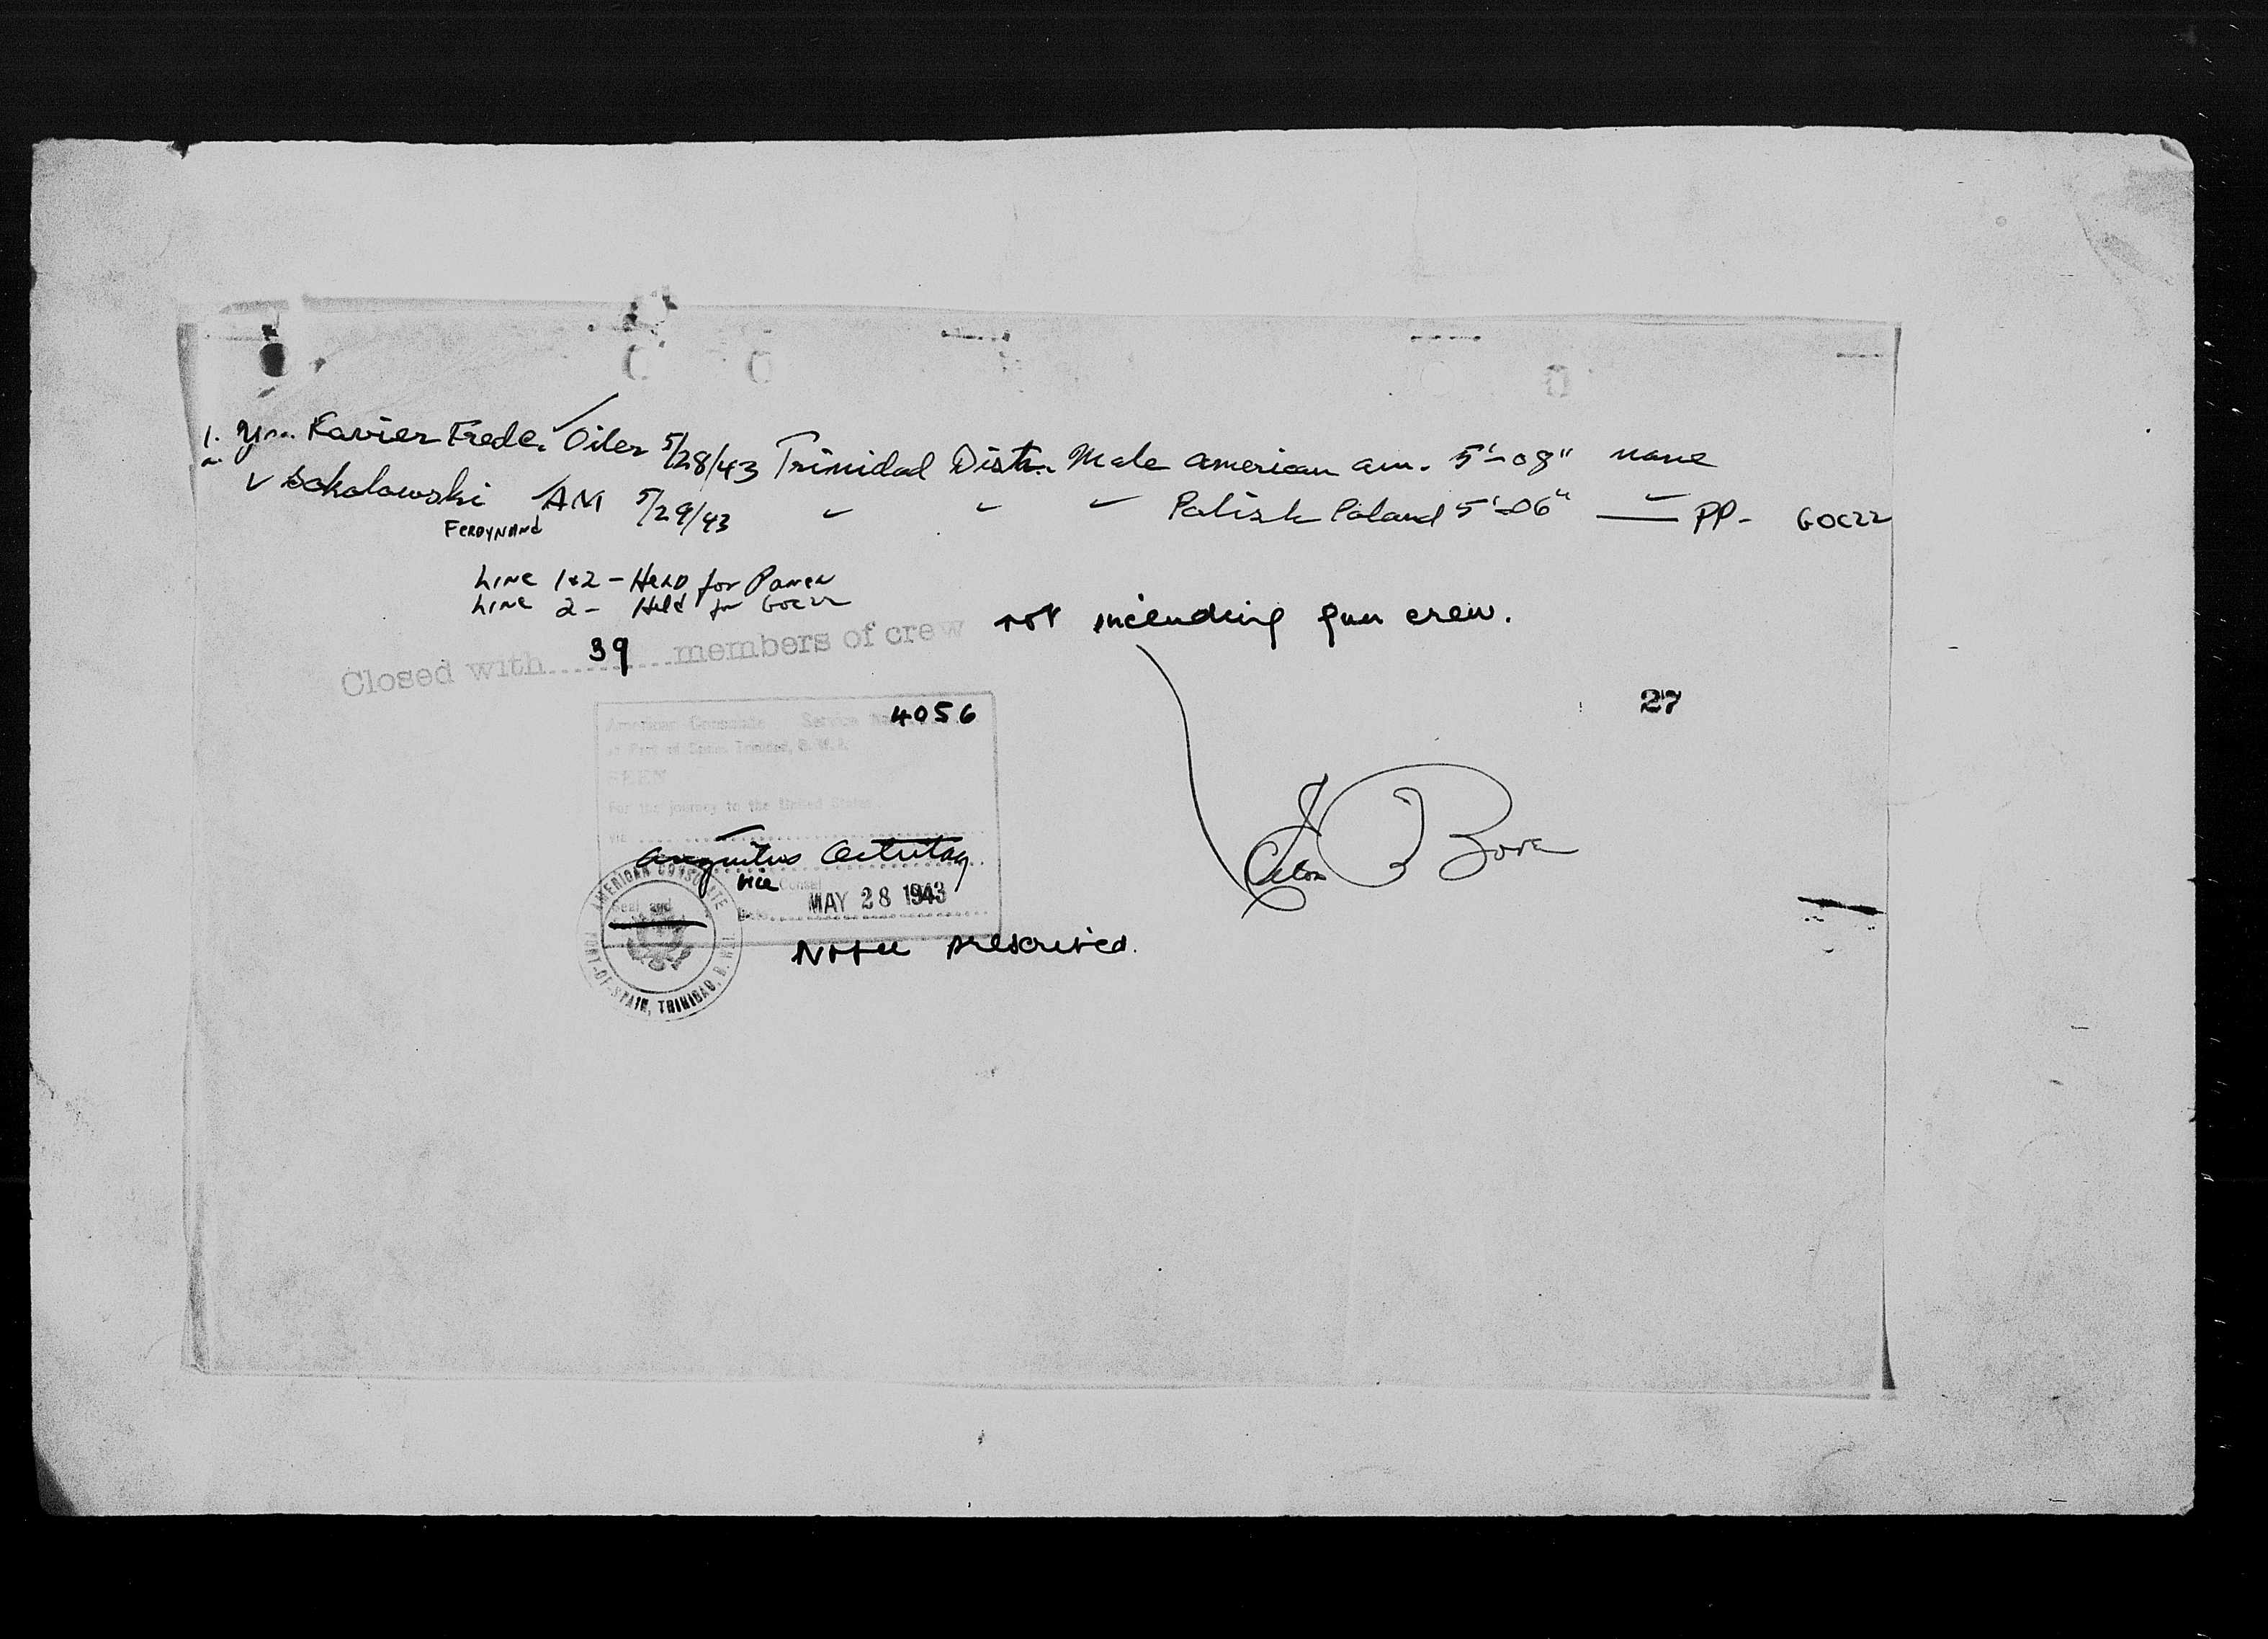 1. Xavier Frede. Oiler 5/28/43 Trinidad Distr. Male American am. 5'-08" none
2. v Sokolowski AM 5/29/43 " " " Polish Poland 5'-06" " PP-
FERDYNAND
Line 1+2 - Held for
Line 2 - Held for
Closed with 39 members of crew not including gun crew.
4056
27
American Consulate Service
at Port of Spain Trinidad, B. W. I.
SEEN
For the journey to the United States.
via
vice Consul
Seal and
Date MAY 28 1943
AMERICAN CONSULATE
PORT-OF-SPAIN, TRINIDAD, B. W. I.
No fee prescribed.